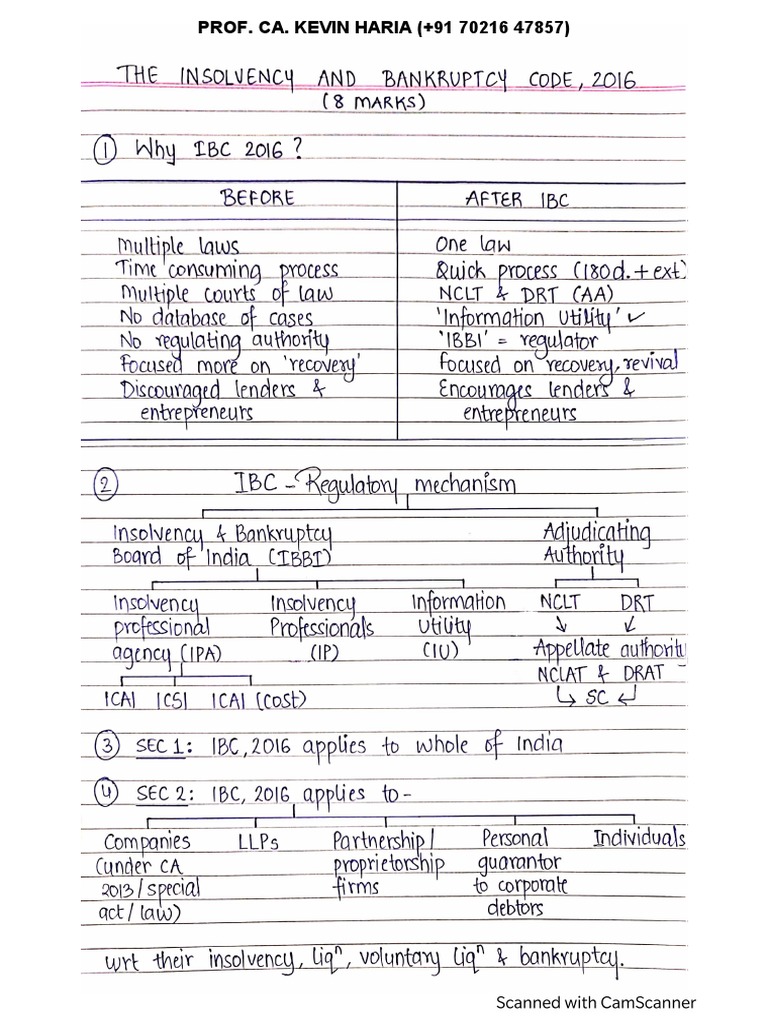 PROF. CA. KEVIN HARIA (+91 70216 47857)
THE INSOLVENCY AND BANKRUPTCY CODE, 2016
(8 MARKS)
① Why IBC 2016?
BEFORE AFTER IBC
Multiple laws One law
Time consuming process Quick process (180d. + ext)
Multiple courts of law NCLT & DRT (AA)
No database of cases 'Information Utility' ✓
No regulating authority 'IBBI' = regulator
Focused more on 'recovery' Focused on recovery, revival
Discouraged lenders & Encourages lenders &
entrepreneurs entrepreneurs
② IBC - Regulatory mechanism
Insolvency & Bankruptcy Adjudicating
Board of India (IBBI) Authority
Insolvency Insolvency Information NCLT DRT
professional Professionals Utility ↘ ↙
agency (IPA) (IP) (IU) Appellate authority
NCLAT & DRAT
ICAI ICSI ICAI (COST) ↳ SC ↲
③ SEC 1: IBC, 2016 applies to whole of India
④ SEC 2: IBC, 2016 applies to -
Companies LLPs Partnership/ Personal Individuals
(under CA proprietorship guarantor
2013/special firms to corporate
act/law) debtors
wrt their insolvency, liqⁿ, voluntary liqⁿ & bankruptcy.
Scanned with CamScanner